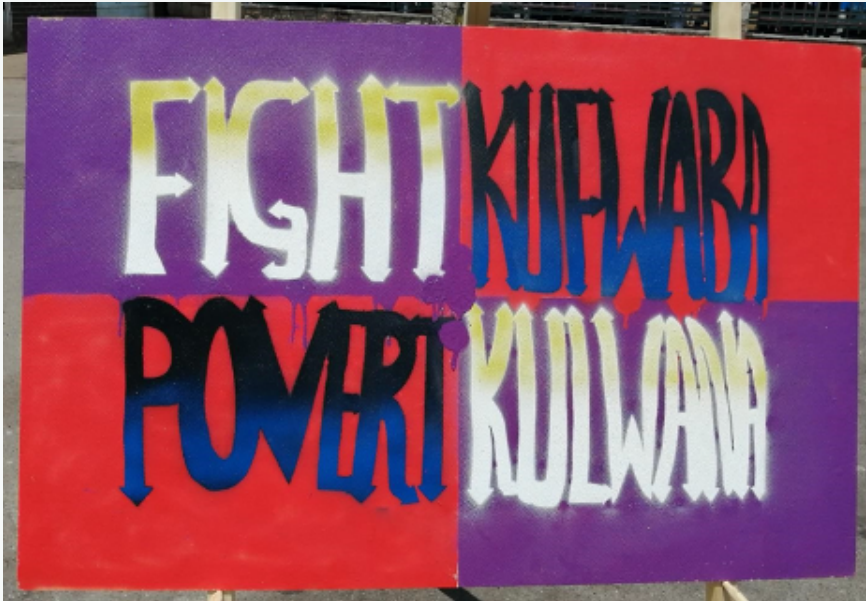 FIGHT KUFWABA
POVERT KULWANA